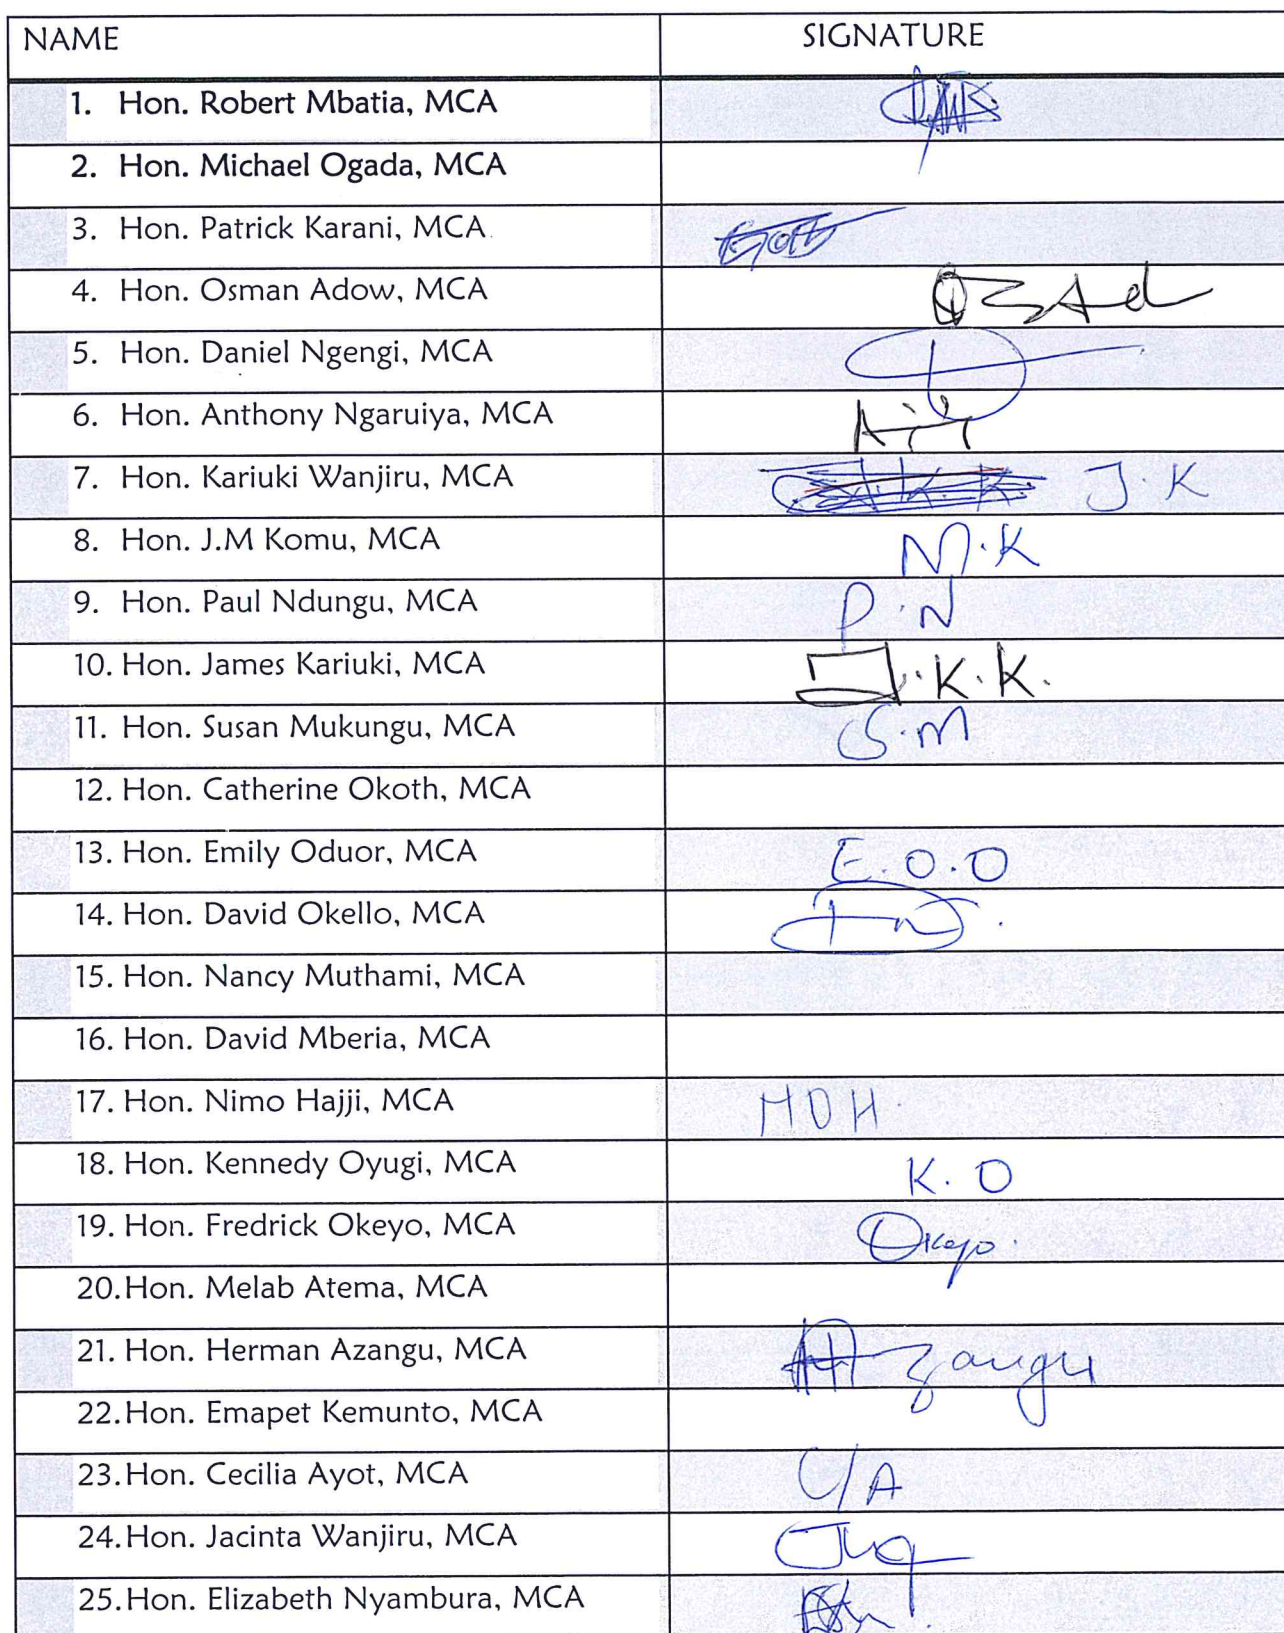 NAME SIGNATURE
1. Hon. Robert Mbatia, MCA
2. Hon. Michael Ogada, MCA
3. Hon. Patrick Karani, MCA
4. Hon. Osman Adow, MCA
5. Hon. Daniel Ngengi, MCA
6. Hon. Anthony Ngaruiya, MCA
7. Hon. Kariuki Wanjiru, MCA J.K
8. Hon. J.M Komu, MCA M.K
9. Hon. Paul Ndungu, MCA P.N
10. Hon. James Kariuki, MCA J.K.K.
11. Hon. Susan Mukungu, MCA S.M
12. Hon. Catherine Okoth, MCA
13. Hon. Emily Oduor, MCA E.O.O
14. Hon. David Okello, MCA
15. Hon. Nancy Muthami, MCA
16. Hon. David Mberia, MCA
17. Hon. Nimo Hajji, MCA
18. Hon. Kennedy Oyugi, MCA K.O
19. Hon. Fredrick Okeyo, MCA Okeyo.
20. Hon. Melab Atema, MCA
21. Hon. Herman Azangu, MCA
22. Hon. Emapet Kemunto, MCA
23. Hon. Cecilia Ayot, MCA C/A
24. Hon. Jacinta Wanjiru, MCA
25. Hon. Elizabeth Nyambura, MCA